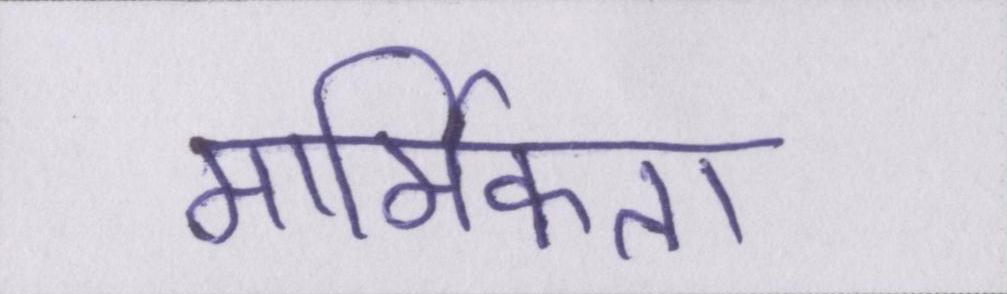 मार्मिकता